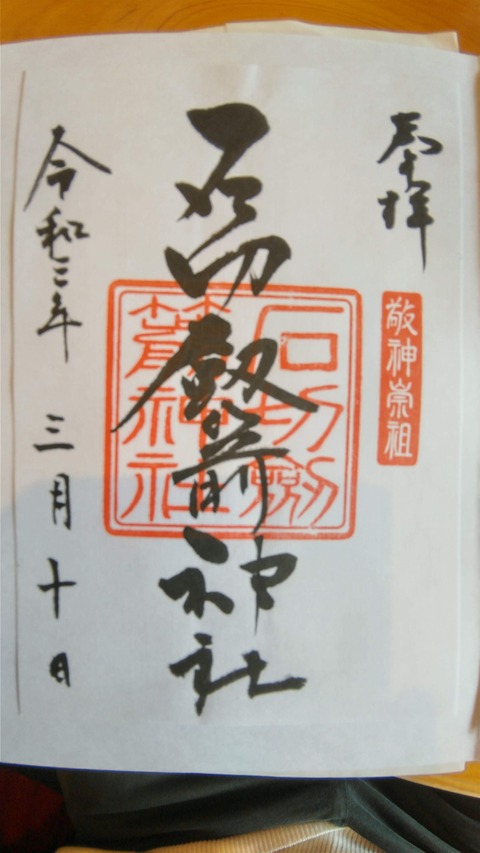 奉拝
敬神崇祖
石切劔箭神社
石切劔箭神社
令和三年 三月十日